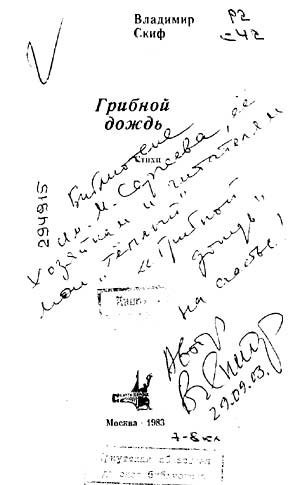 Владимир
Скиф
Р2
С42
Грибной
дождь
Стихи
294915
Библиотеке
им. М. Сергеева, её
хозяйкам и читателям
мой "тёплый"
и "Грибной
дождь"
на счастье!
Автор
29.09.03.
Москва · 1983
7-8 кл
Иркутская областная
детская библиотека